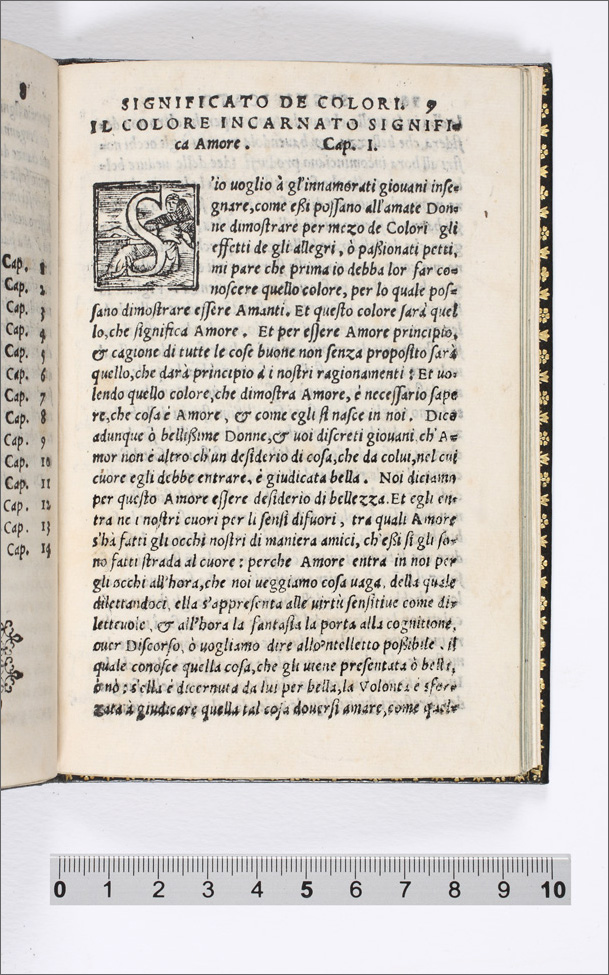 8
Cap. 1
Cap. 2
Cap. 3
Cap. 4
Cap. 5
Cap. 6
Cap. 7
Cap. 8
Cap. 9
Cap. 10
Cap. 11
Cap. 12
Cap. 13
Cap. 14
SIGNIFICATO DE COLORI. 9
IL COLORE INCARNATO SIGNIFI-
ca Amore. Cap. I.
S'io uoglio à gl'innamorati giouani inse-
gnare, come eßi poſſano all'amate Don-
ne dimoſtrare per mezo de Colori gli
effetti de gli allegri, ò paßionati petti,
mi pare che prima io debba lor far co-
noſcere quello colore, per lo quale poſ-
ſano dimoſtrare eſſere Amanti. Et queſto colore ſarà quel
lo, che ſignifica Amore. Et per eſſere Amore principio,
& cagione di tutte le coſe buone non ſenza propoſito ſarà
quello, che darà principio à i noſtri ragionamenti: Et uo-
lendo quello colore, che dimoſtra Amore, è neceſſario ſape
re, che coſa è Amore, & come egli ſi naſce in noi. Dico
adunque ò bellißime Donne, & uoi diſcreti giouani, ch'A-
mor non è altro ch'un deſiderio di coſa, che da colui, nel cui
cuore egli debbe entrare, è giudicata bella. Noi diciamo
per queſto Amore eſſere deſiderio di bellezza. Et egli en-
tra ne i noſtri cuori per li ſenſi difuori, tra quali Amore
s'hà fatti gli occhi noſtri di maniera amici, ch'eßi ſi gli ſo-
no fatti ſtrada al cuore: perche Amore entra in noi per
gli occhi all'hora, che noi ueggiamo coſa uaga, della quale
dilettandoci, ella s'appreſenta alle uirtù ſenſitiue come di-
letteuole, & all'hora la fantaſia la porta alla cognitione,
ouer Diſcorſo, ò uogliamo dire allo intelletto poßibile. il
quale conoſce quella coſa, che gli uiene preſentata ò bella,
ò nò: s'ella è dicernuta da lui per bella, la Volontà è sfor-
zata à giudicare quella tal coſa douerſi amare, come quel-
0 1 2 3 4 5 6 7 8 9 10